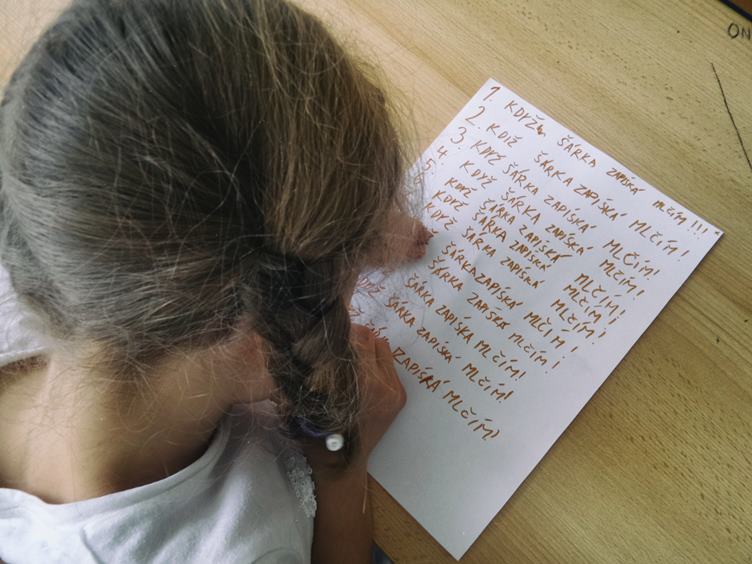 ON
1. KDYŽ ŠÁRKA ZAPÍSKÁ MLČÍM!!!
2. KDIŽ ŠÁRKA ZAPÍSKÁ MLČÍM!
3. KDYŽ ŠÁRKA ZAPÍSKÁ MLČÍM!
4. KDYŽ ŠÁRKA ZAPÍSKÁ MLČÍM!
5. KDYŽ ŠÁRKA ZAPÍSKÁ MLČÍM!
KDYŽ ŠÁRKA ZAPÍSKÁ MLČÍM!
KDYŽ ŠÁRKA ZAPÍSKÁ MLČÍM!
ŠÁRKA ZAPÍSKÁ MLČÍM!
ŠÁRKA ZAPÍSKÁ MLČÍM!
ŠÁRKA ZAPÍSKA MLČÍM!
ŠÁRKA ZAPÍSKÁ MLČÍM!
ZAPÍSKÁ MLČÍM!